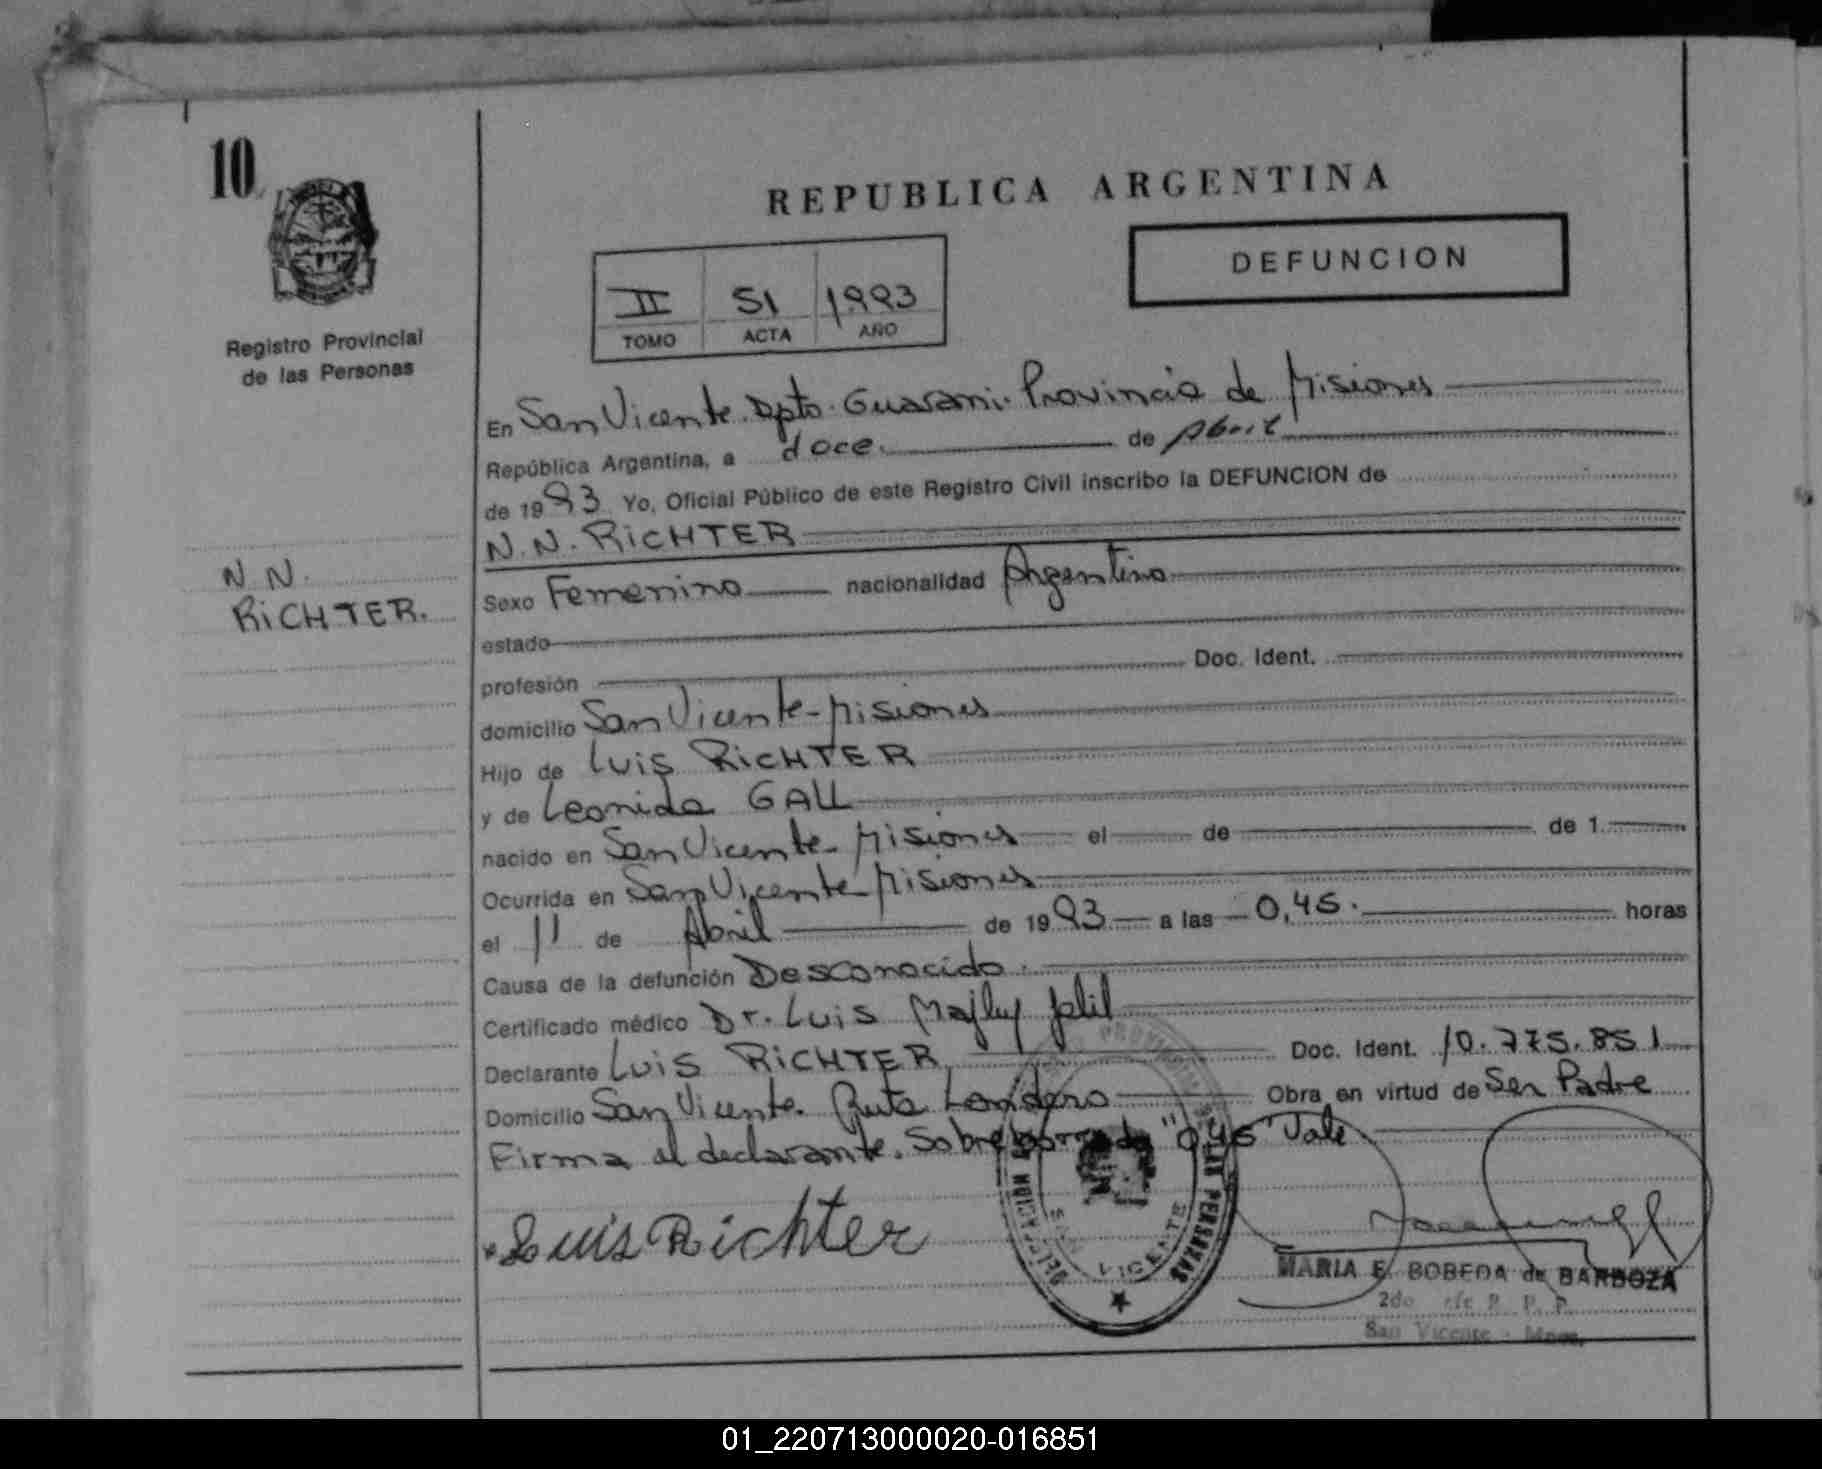 10
Registro Provincial
de las Personas
N.N.
RICHTER.
REPUBLICA ARGENTINA
DEFUNCION
II 51 1993
TOMO ACTA AÑO
En San Vicente. Dpto. Guarani. Provincia de Misiones
República Argentina, a doce. de Abril
de 1993 Yo, Oficial Público de este Registro Civil inscribo la DEFUNCION de
N.N. RICHTER
Sexo Femenino nacionalidad Argentina
estado
profesión Doc. Ident.
domicilio San Vicente - Misiones
Hijo de Luis RICHTER
y de Leonida GALL
nacido en San Vicente - Misiones el de de 1
Ocurrida en San Vicente Misiones
el 11 de Abril de 1993 a las 0,45. horas
Causa de la defunción Desconocido.
Certificado médico Dr. Luis
Declarante Luis RICHTER Doc. Ident. 10.775.851
Domicilio San Vicente. Ruta Obra en virtud de Ser Padre
Firma el declarante. Sobreborrado "0,45" Vale
Luis Richter
DELEGACIÓN PROVINCIAL DE LAS PERSONAS
SAN VICENTE
MARIA E. BOBEDA de BARBOZA
2do R. P. P.
San Vicente - Mnes.
01_220713000020-016851